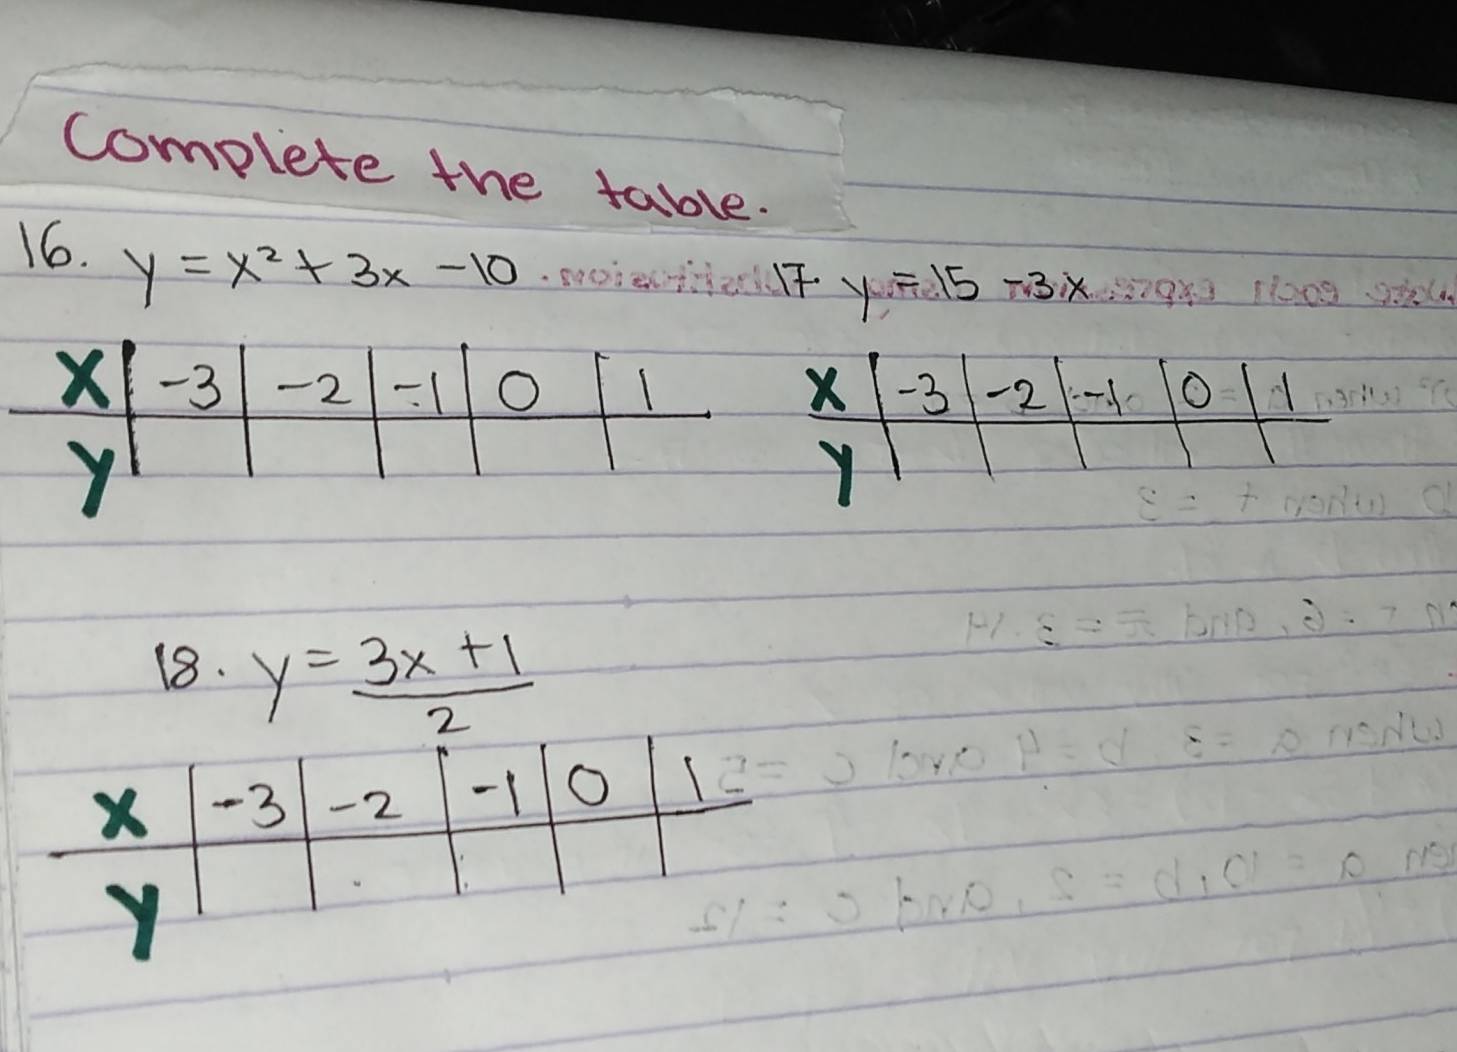 Complete the table.
16. y = x² + 3x - 10
17. y = 15 - 3x
X | -3 | -2 | -1 | 0 | 1
y
X | -3 | -2 | -1 | 0 | 1
y
18. y = 3x + 1
2
X | -3 | -2 | -1 | 0 | 1
y